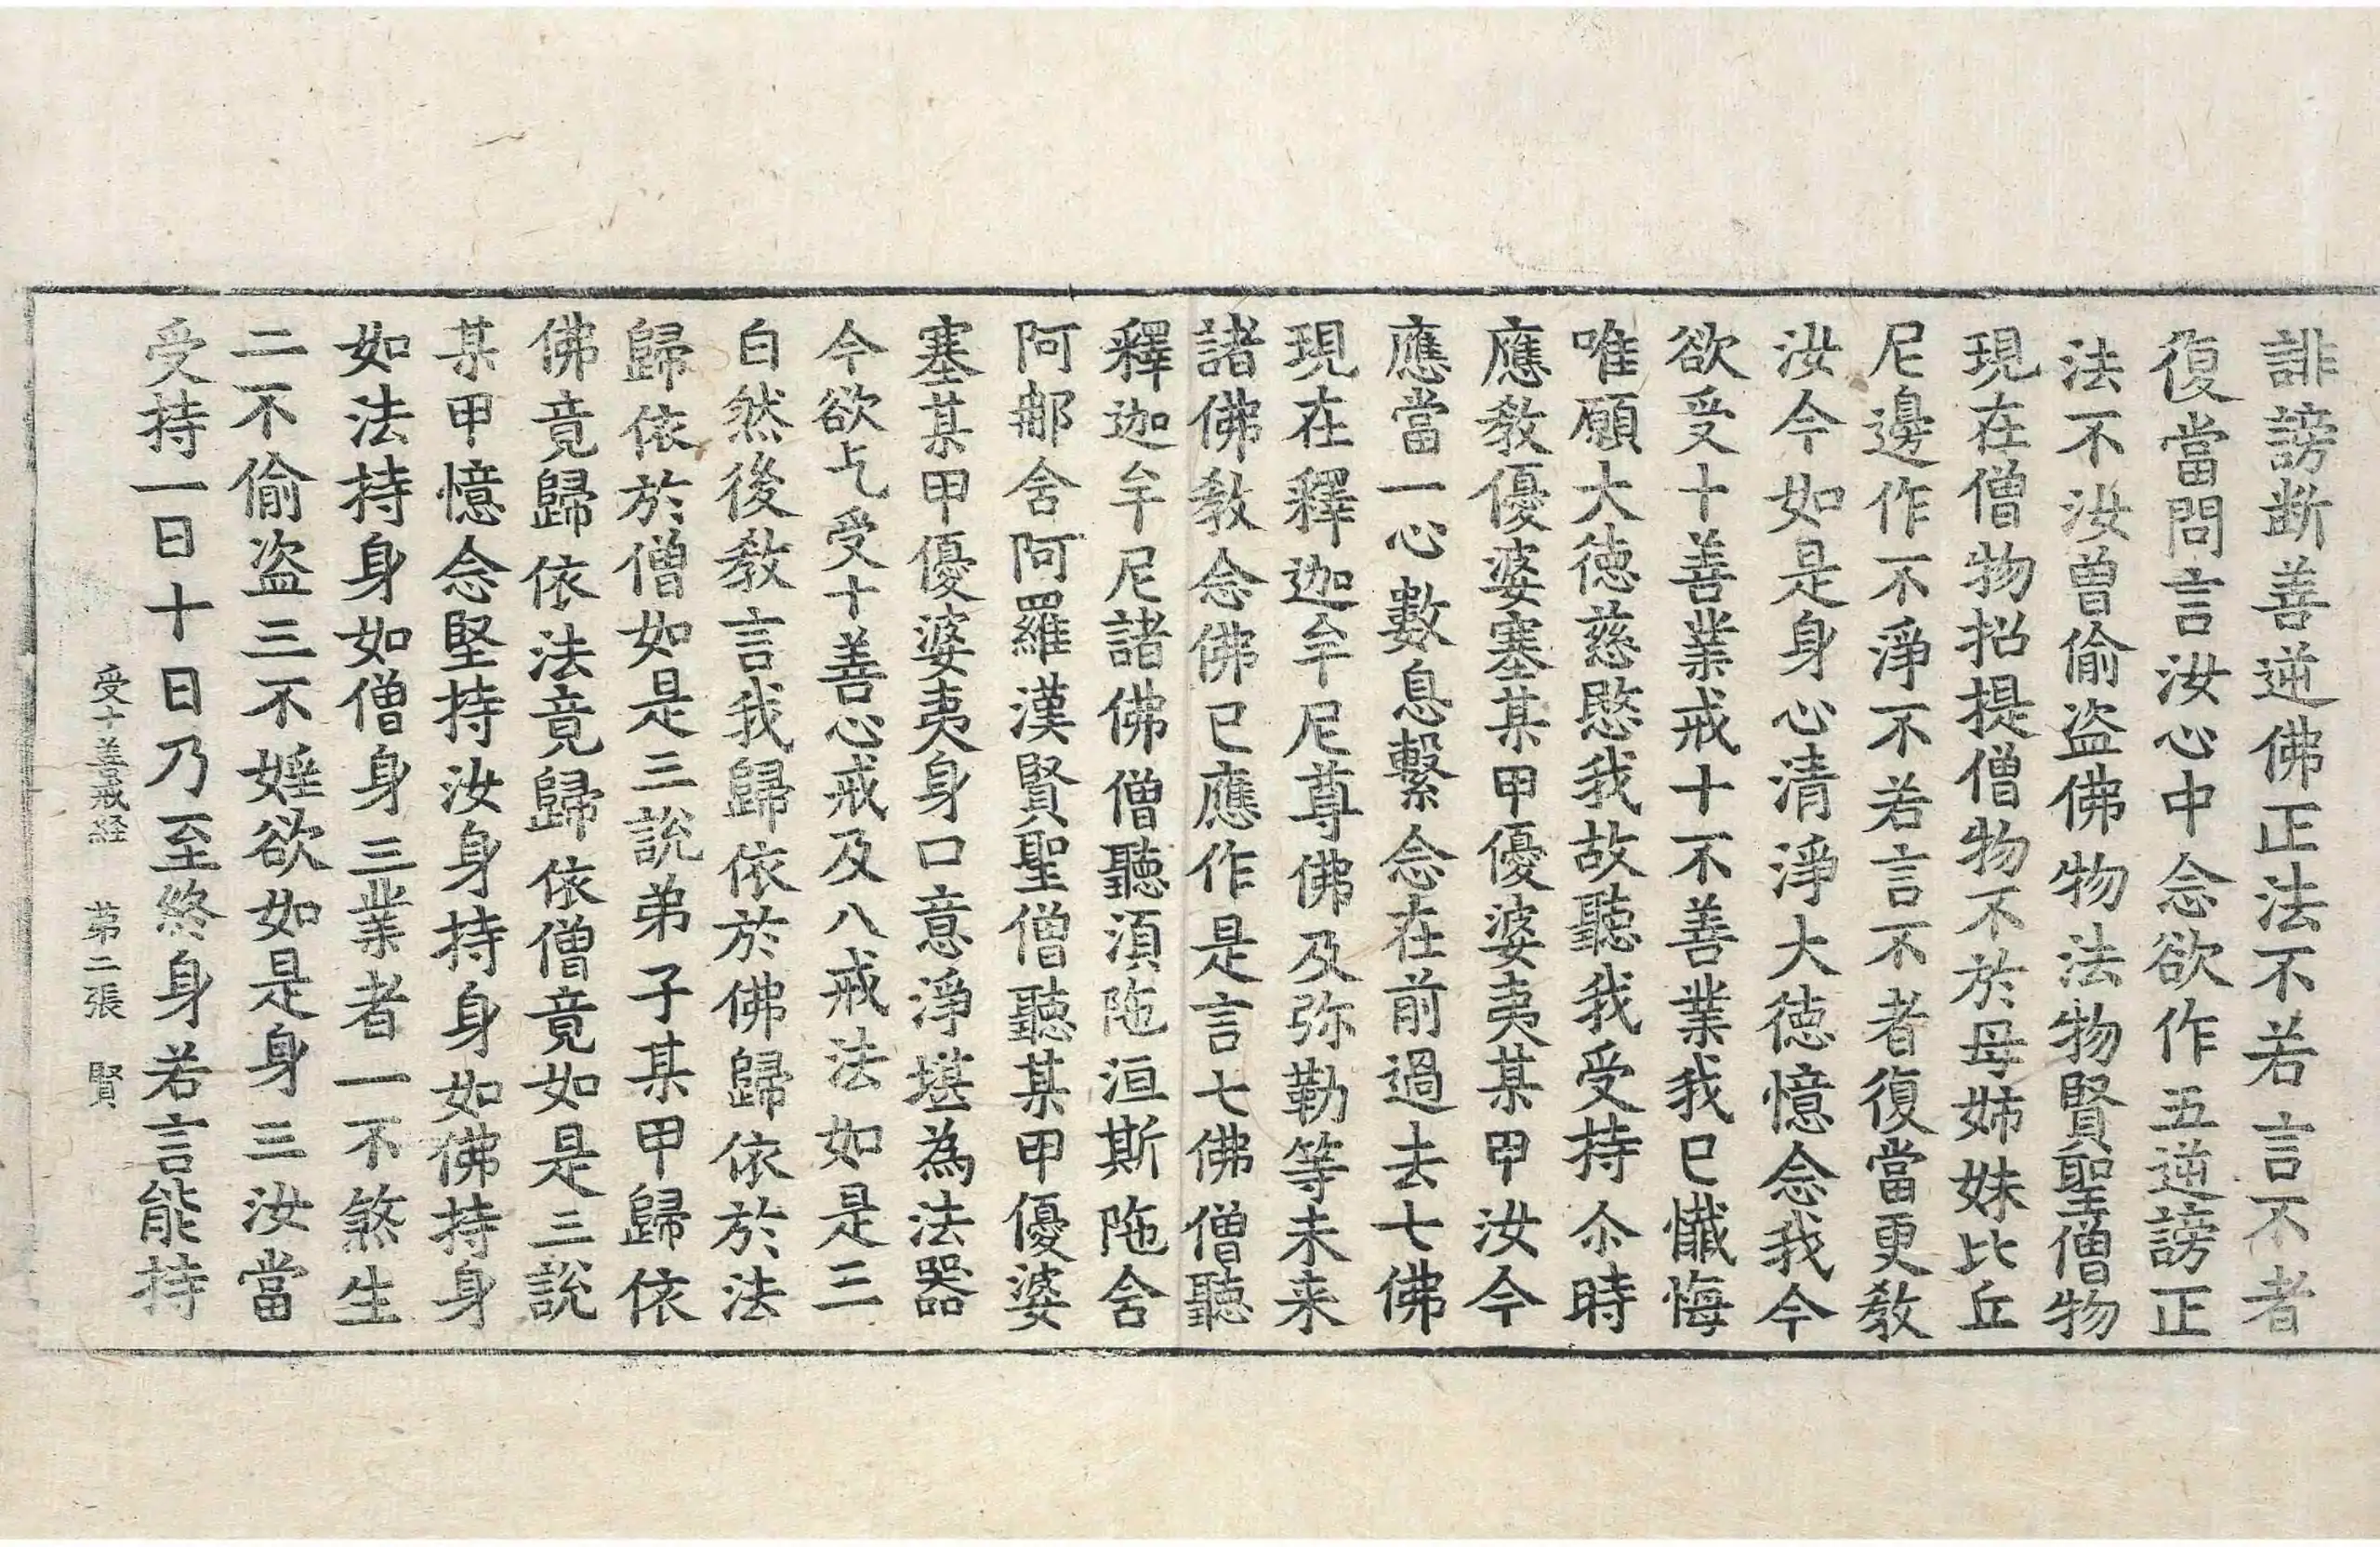 誹謗断善逆佛正法不若言不者
復當問言汝心中念欲作五逆謗正
法不汝曾偷盗佛物法物賢聖僧物
現在僧物招提僧物不於母姉妹比丘
尼邊作不淨不若言不者復當更教
汝今如是身心清淨大徳憶念我今
欲受十善業戒十不善業我已懺悔
唯願大徳慈愍我故聽我受持尒時
應教優婆塞某甲優婆夷某甲汝今
應當一心數息繫念在前過去七佛
現在釋迦牟尼尊佛及弥勒等未来
諸佛教念佛已應作是言七佛僧聽
釋迦牟尼諸佛僧聽湏陁洹斯陁含
阿那含阿羅漢賢聖僧聽某甲優婆
塞某甲優婆夷身口意淨堪為法器
今欲乞受十善心戒及八戒法如是三
白然後教言我歸依於佛歸依於法
歸依於僧如是三說弟子某甲歸依
佛竟歸依法竟歸依僧竟如是三說
某甲憶念堅持汝身持身如佛持身
如法持身如僧身三業者一不煞生
二不偷盗三不婬欲如是身三汝當
受持一日十日乃至終身若言能持
受十善戒経　第二張　賢